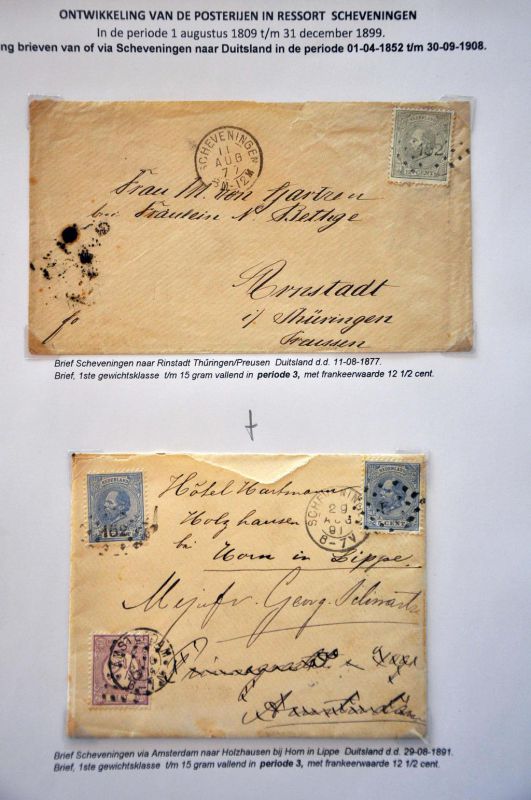 ONTWIKKELING VAN DE POSTERIJEN IN RESSORT SCHEVENINGEN
In de periode 1 augustus 1809 t/m 31 december 1899.
ng brieven van of via Scheveningen naar Duitsland in de periode 01-04-1852 t/m 30-09-1908.
SCHEVENINGEN
11
AUG
77
NEDERLAND
152
CENT
Frau M. von Gartzen
bei Fräulein N. Bethge
Arnstadt
i/ Thüringen
Preussen
Brief Scheveningen naar Rinstadt Thüringen/Preusen Duitsland d.d. 11-08-1877.
Brief, 1ste gewichtsklasse t/m 15 gram vallend in periode 3, met frankeerwaarde 12 1/2 cent.
NEDERLAND
152
Hôtel Hartmann
Holzhausen
bei Horn in Lippe
SCHEVENINGEN
29
AUG
91
8-9AV
NEDERLAND
5 CENT
Mejufr. Georg.
AMSTERDAM
Amsterdam
Brief Scheveningen via Amsterdam naar Holzhausen bij Horn in Lippe Duitsland d.d. 29-08-1891.
Brief, 1ste gewichtsklasse t/m 15 gram vallend in periode 3, met frankeerwaarde 12 1/2 cent.